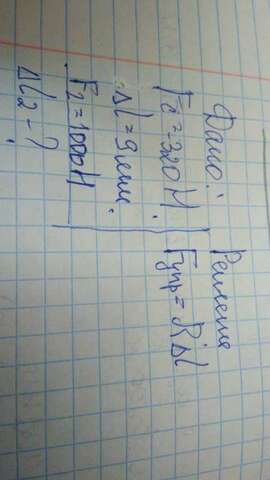 Дано:
F₁ = 320 Н
Δl = 9 мм
F₂ = 1000 Н
Δl₂ - ?
Решение
Fупр = kΔl